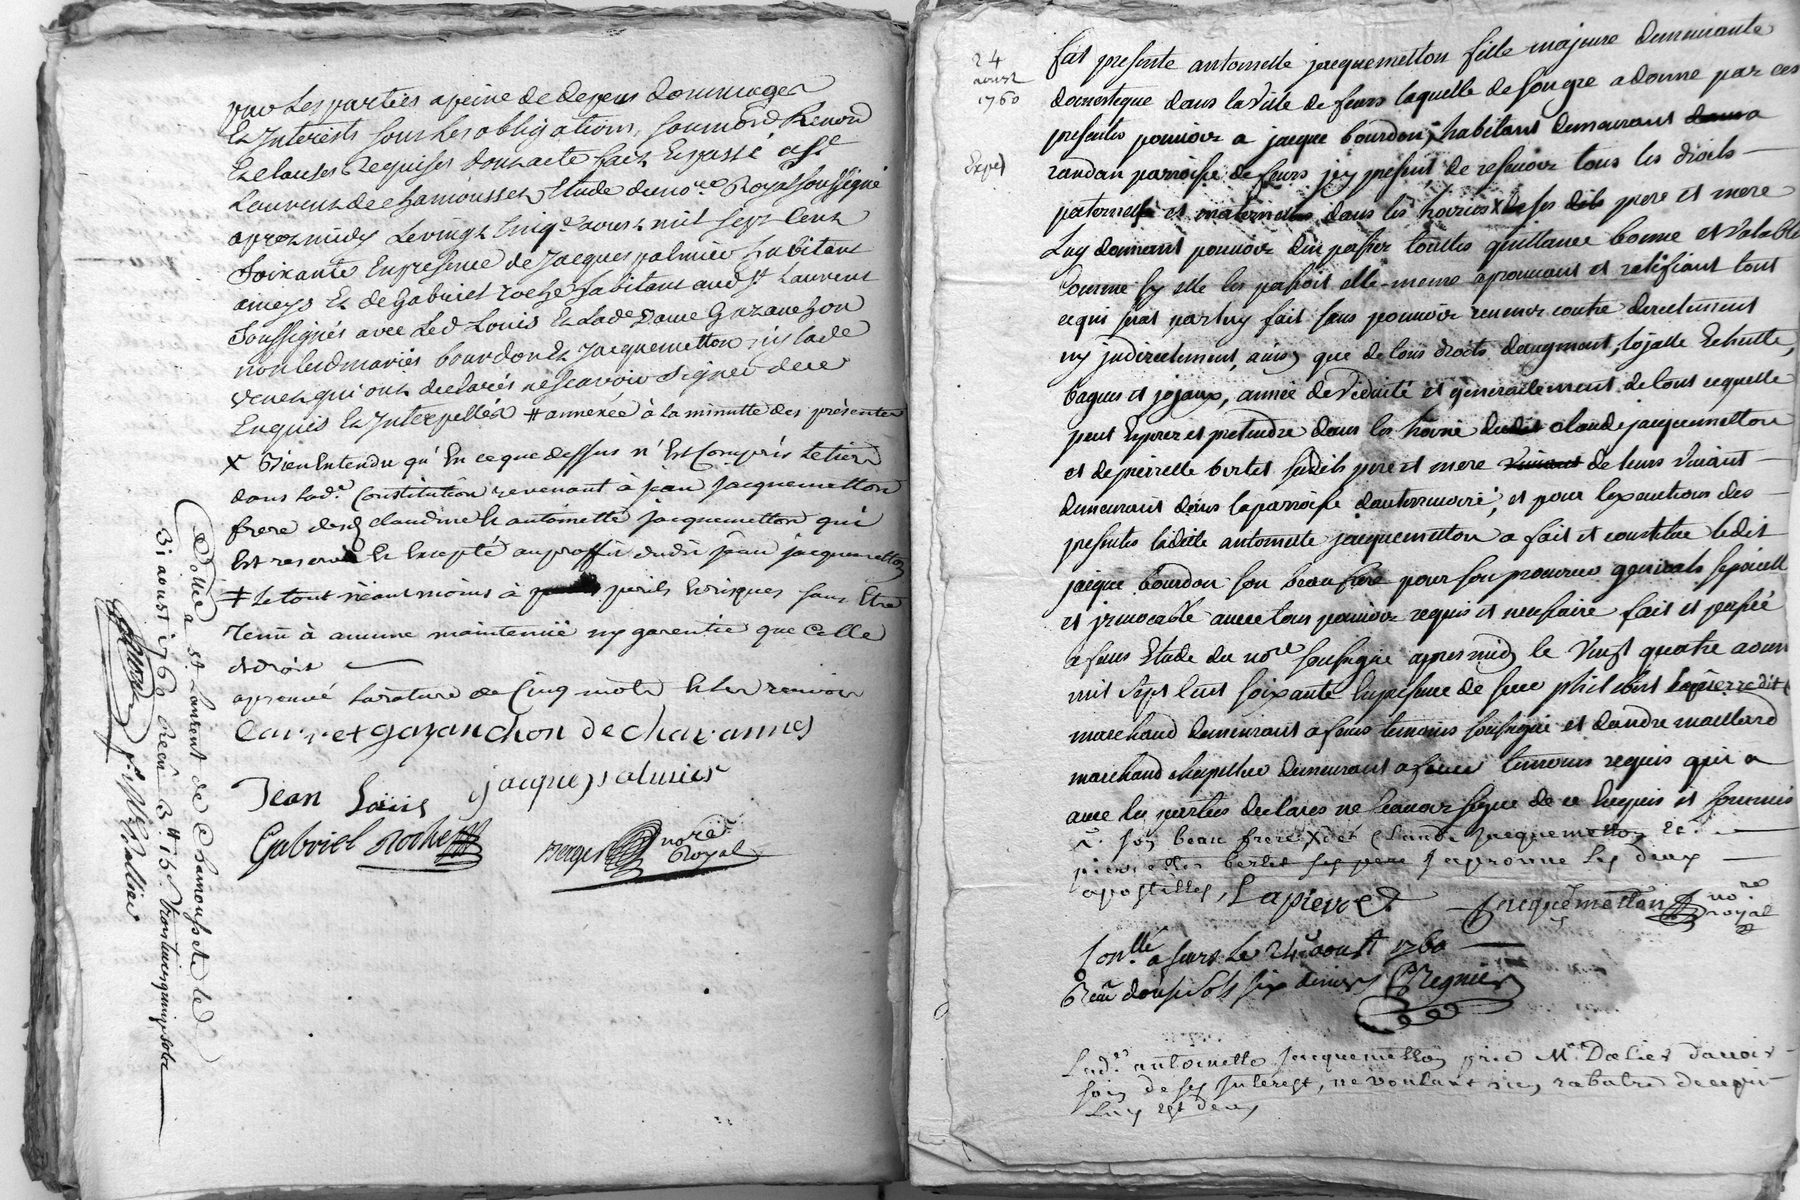 par les parties a peine de depens dommages
Et Interests sous les obligations, soumôns Renôn
Et clauses Requises dont acte fait Et passé a St
Laurent de chamousset Etude du nore Royal soussigné
apres midy Le vingt cinqe aoust mil sept Cent
Soixante En presence de Jacques palmier habitant
ameys Et de Gabriel roche habitant aud St Laurent
Soussignés avec Led Louis Et Lade Dame Gazanchon
non lesd mariés bourdon Et Jacquemetton ny lade
qui ont declarés ne scavoir signer de ce
Enquis Et Interpellés # annexée à la minutte des présentes
X Bien Entendu qu'En ce que dessus n'Est Compris le tiers
dans lade Constitution revenant à jean jacquemetton
frere desd claudine Et antoinette jacquemetton qui
Est reservé Et Excepté au proffit dudit jean jacquemetton
# Le tout néantmoins à perils Et risques sans Etre
Tenu à aucune maintenüe ny garentie que Celle
de droit
aprouvé la rature de Cinq mots Et les renvois
Carret gazanchon de chavannes
Jean Loüis jacques palmier
Gabriel Roche
nore Royal
Collé a St Laurent de Chamousset le
31 aoust 1760 Recû 3tt 15s trois livres quinze sols
24
aoust
1760
Expéd
fut presente antoinette jacquemetton fille majeure demeurante
domestique dans la ville de feurs laquelle de son gre a donne par ces
presentes pouvoir a jacque bourdon, habitant demeurant
randan parroisse de feurs jcy present de resevoir tous les droits
paternels et maternels dans les hoiries X de ses dits pere et mere
Luy donnant pouvoir d'en passer touttes quittance bonne et valable
Comme sy elle les passoit elle-meme aprouvant et ratifiant tout
ce qui serat par luy fait sans pouvoir revenir contre directement
ny judirectement, ainsy que de tous droits d'augment,
bagues et joyaux, année de viduité et generallement de tout ce quelle
peut Esperer et pretendre dans les hoirie claude jacquemetton
et de pierrette bertet susdits pere et mere de leurs vivant
demeurant dans la parroisse ; et pour l'exécutions des
presentes ladite antoinette jacquemetton a fait et constitue ledit
jacque bourdon son beau frere pour son procureur general Especiall
et irrevocable avec tous pouvoir requis et nessaire fait et passée
a feurs Etude du nore soussigné apres midy le vingt quatre aoust
mil sept cent soixante En presence de lapierre dit
marchand demeurant a feurs temoins soussigné et d'andre maillard
marchand chapellier demeurant a feurs temoins requis qui a
avec les parties declares ne scavoir signe de ce Enquis et sommés
son beau frere, X de Claude Jacquemetton Et
pierrette bertet ses pere Japrouve les deux
apostilles, Lapierre Jacquemetton nore royal
Conllé a feurs le 24e aoust 1760
Recû douse sols six deniers Regnier
Lade antoinette Jacquemetton prie Mr Dalier davoir
soin de ses Interest, ne voulant rien rabatre de ce qui
Luy est deu,